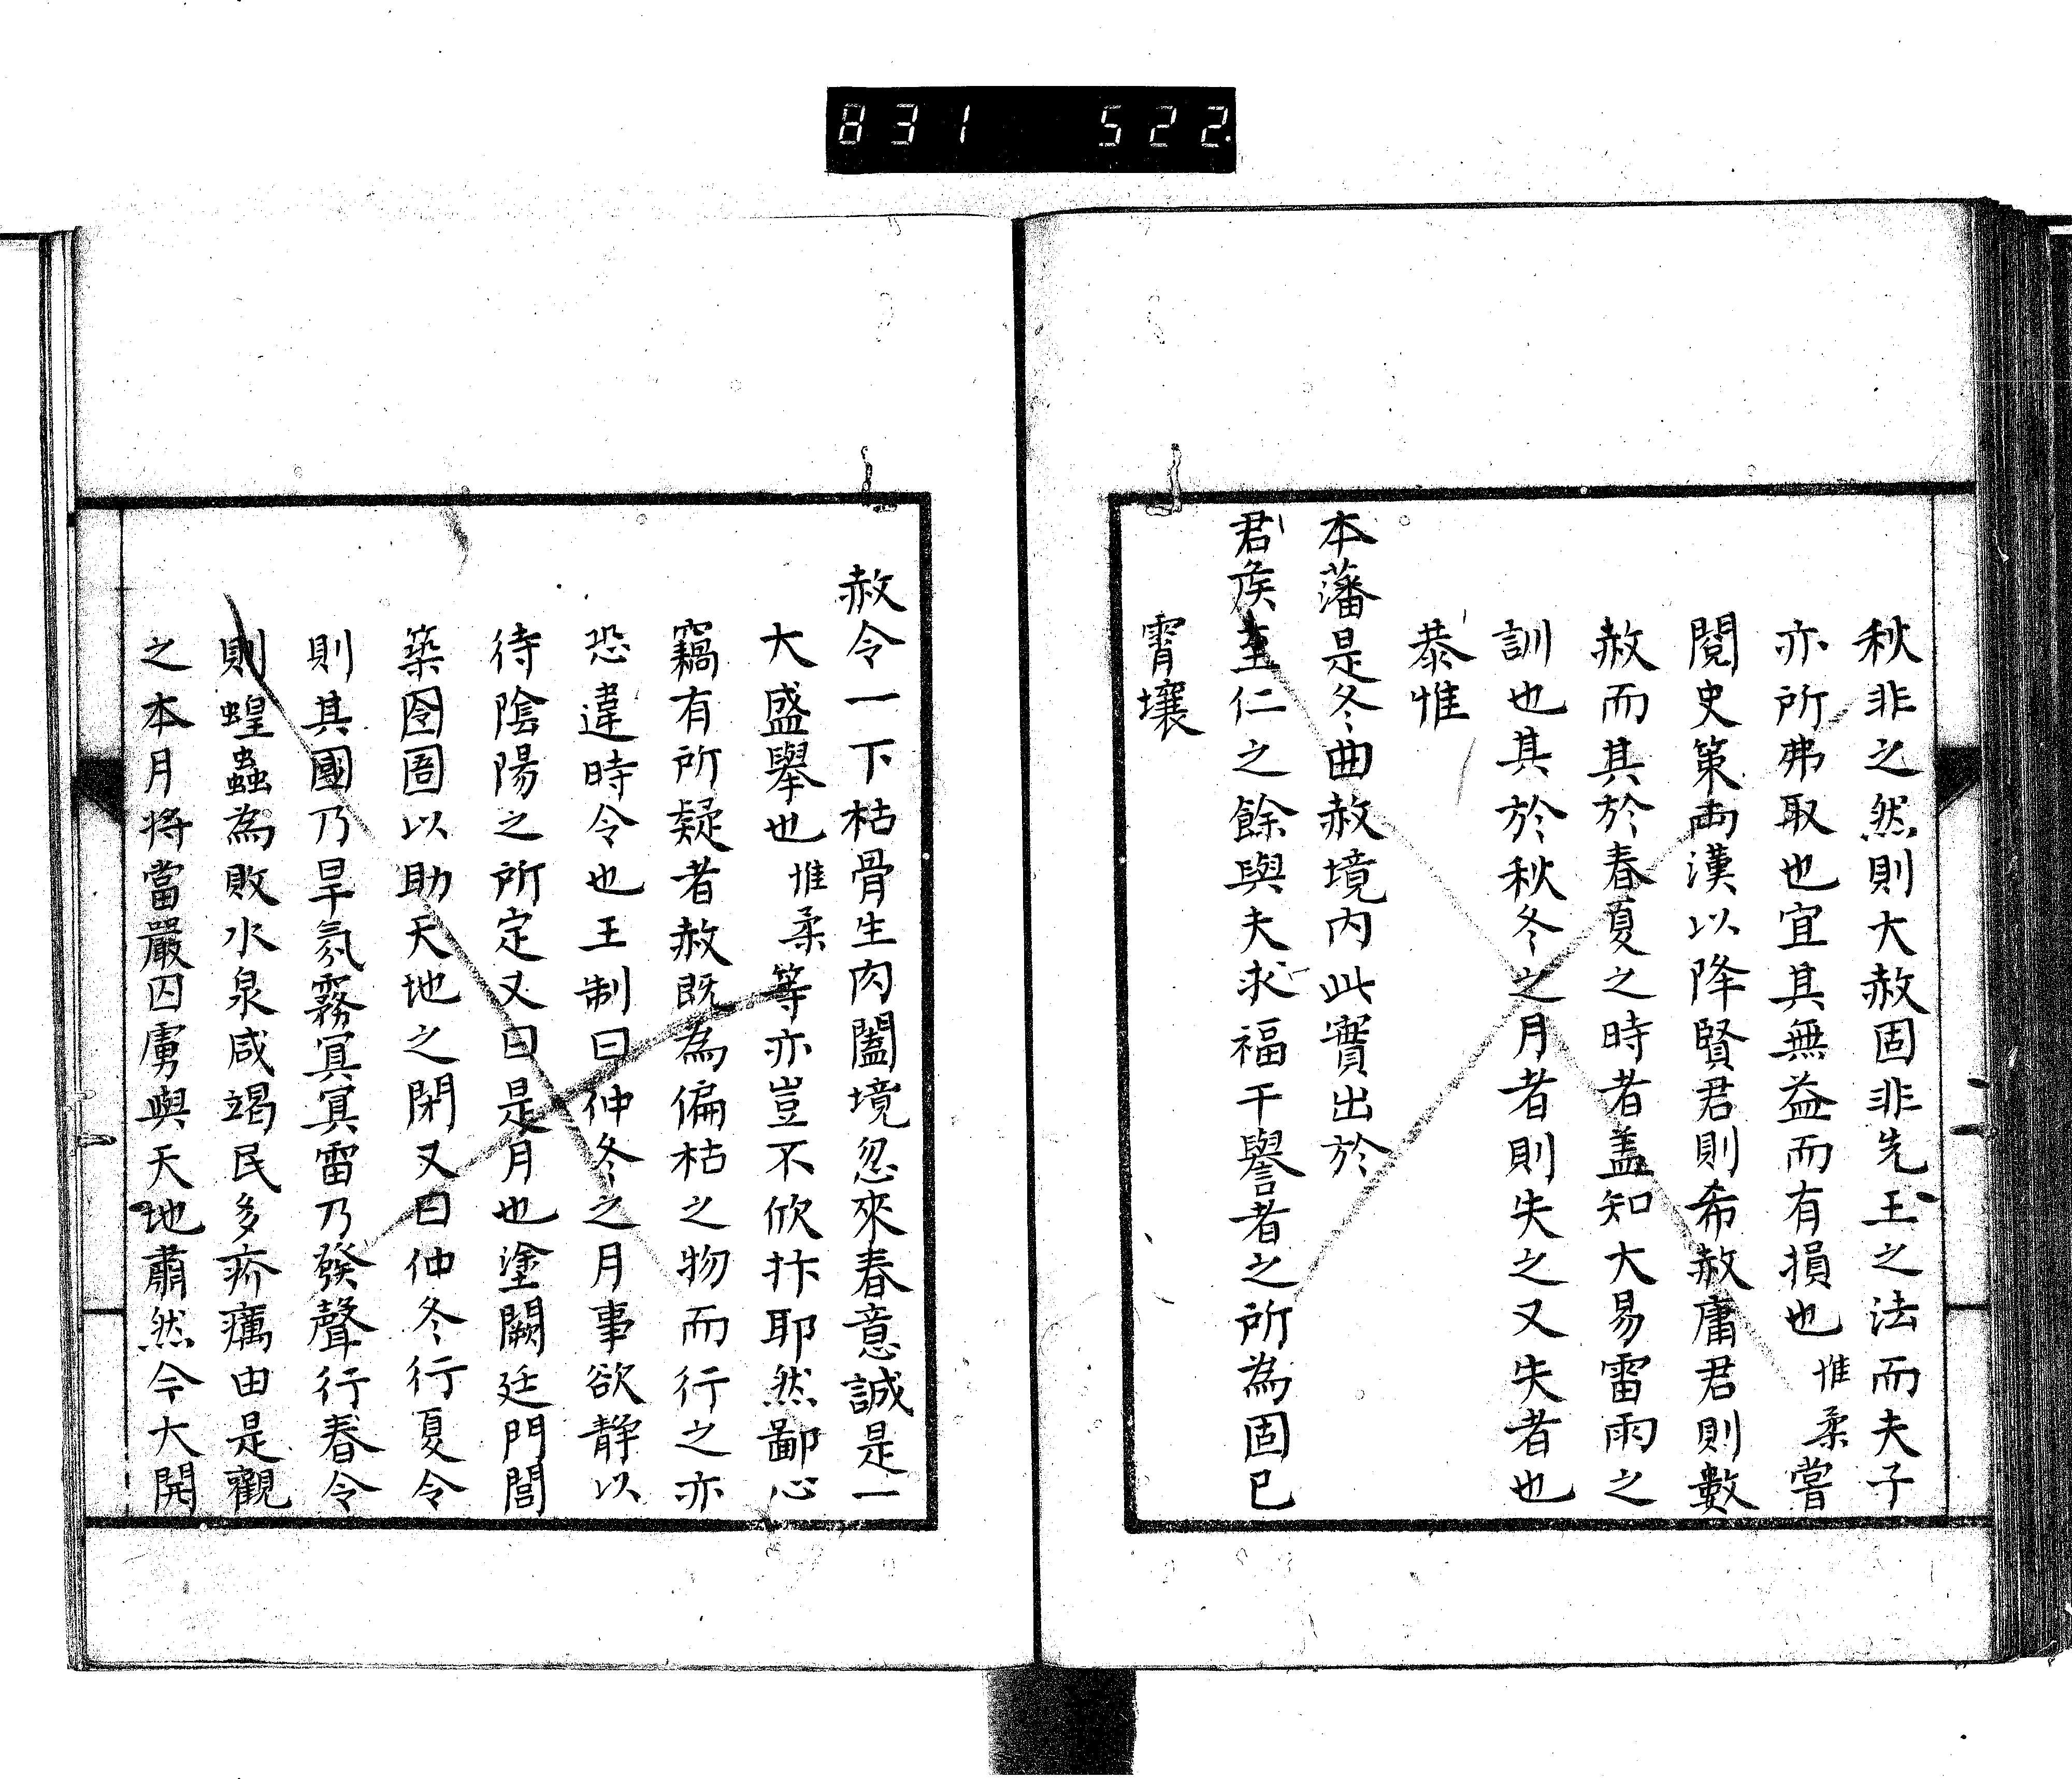 831 522
秋非之然則大赦固非先王之法而夫子
亦所弗取也宜其無益而有損也惟柔嘗
閱史策両漢以降賢君則希赦庸君則數
赦而其於春夏之時者盖知大易雷雨之
訓也其於秋冬之月者則失之又失者也
恭惟
本藩是冬曲赦境内此實出於
君侯至仁之餘與夫求福干譽者之所為固已
霄壤
赦令一下枯骨生肉闔境忽來春意誠是一
大盛舉也惟柔等亦豈不欣抃耶然鄙心
竊有所疑者赦既為偏枯之物而行之亦
恐違時令也王制曰仲冬之月事欲静以
待陰陽之所定又曰是月也塗闕廷門閭
築囹圄以助天地之閉又曰仲冬行夏令
則其國乃旱氛霧冥冥雷乃發聲行春令
則蝗蟲為敗水泉咸竭民多疥癘由是觀
之本月将當嚴囚虜與天地肅然今大開